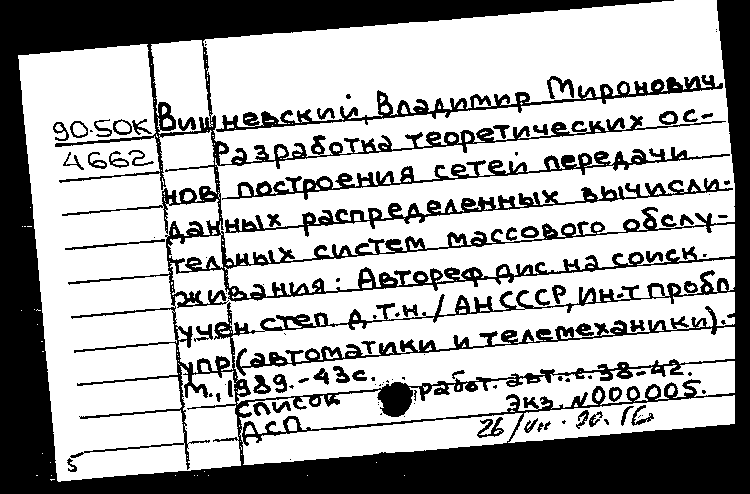 90-50K
4662
Вишневский, Владимир Миронович.
Разработка теоретических ос-
нов построения сетей передачи
данных распределенных вычисли-
тельных систем массового обслу-
живания: Автореф. дис. на соиск.
учен. степ. д.т.н. / АН СССР, Ин-т пробл.
упр (автоматики и телемеханики). -
М., 1989. - 43 с.
Список работ. авт.: с. 38-42.
ДСП. Экз. N000005.
5